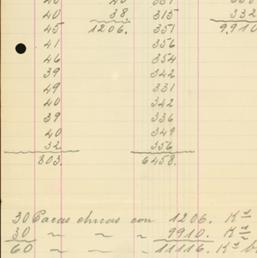 38. 315 332
45 1206. 351 9.910
41 356
46 354
39 342
49 331
40 342
39 336
40 349
32 356
803. 6458.
30 Pacas chicas con 1206. Ks
30 " " " 9910. Ks
60 " " " 11116. Ks b.